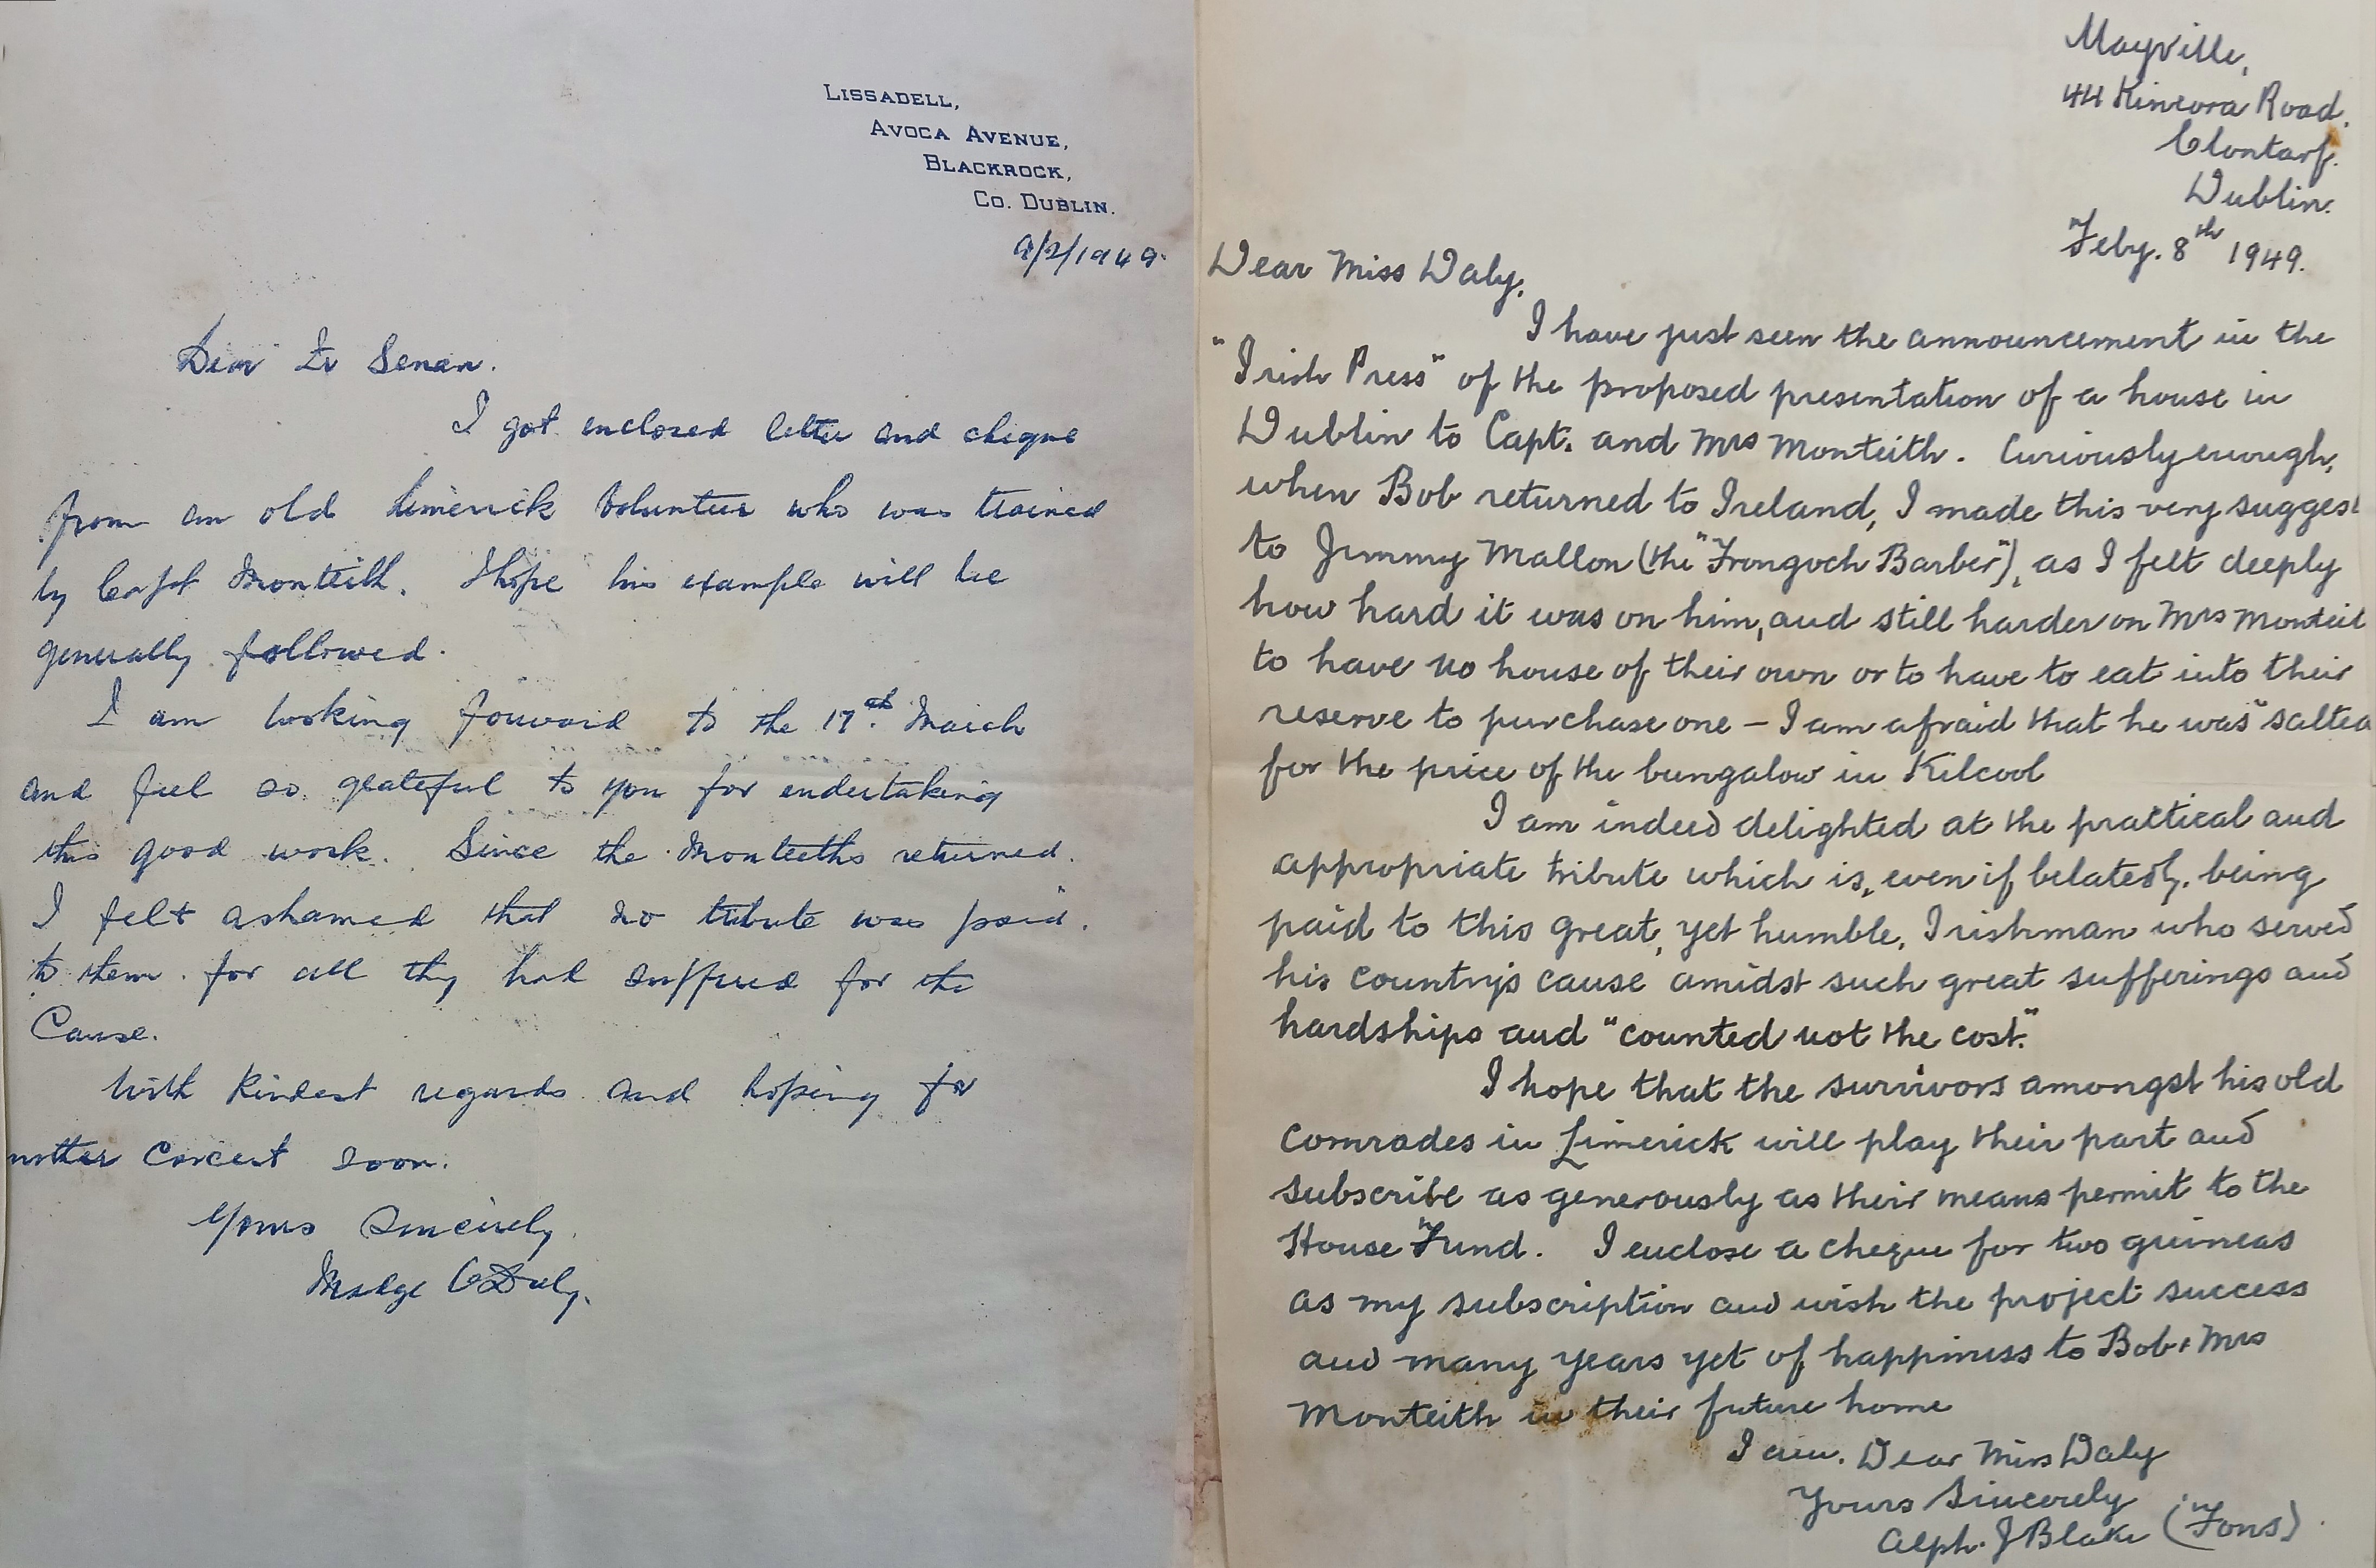 LISSADELL,
AVOCA AVENUE,
BLACKROCK,
CO. DUBLIN.
9/2/1949.
Dear Fr Senan.
I got enclosed letter and cheque
from an old Limerick Volunteer who was trained
by Capt Monteith. I hope his example will be
generally followed.
I am looking forward to the 17th March
and feel so grateful to you for undertaking
this good work. Since the Monteiths returned.
I felt ashamed that no tribute was paid
to them for all they had suffered for the
Cause.
With kindest regards and hoping for
nother Concert soon.
Yours Sincerely
Madge Daly.
Mayville,
44 Kincora Road.
Clontarf.
Dublin.
Feby. 8th 1949.
Dear Miss Daly,
I have just seen the announcement in the
"Irish Press" of the proposed presentation of a house in
Dublin to Capt. and Mrs Monteith. Curiously enough,
when Bob returned to Ireland, I made this very suggest
to Jimmy Mallon (the "Frongoch Barber"), as I felt deeply
how hard it was on him, and still harder on Mrs Monteit
to have no house of their own or to have to eat into their
reserve to purchase one – I am afraid that he was "salted
for the price of the bungalow in Kilcool
I am indeed delighted at the practical and
appropriate tribute which is, even if belatedly, being
paid to this great, yet humble, Irishman who served
his country's cause amidst such great sufferings and
hardships and "counted not the cost."
I hope that the survivors amongst his old
comrades in Limerick will play their part and
subscribe as generously as their means permit to the
House Fund. I enclose a cheque for two guineas
as my subscription and wish the project success
and many years yet of happiness to Bob & Mrs
Monteith in their future home
I am. Dear Miss Daly
Yours Sincerely
Alph. J Blake (Fons)